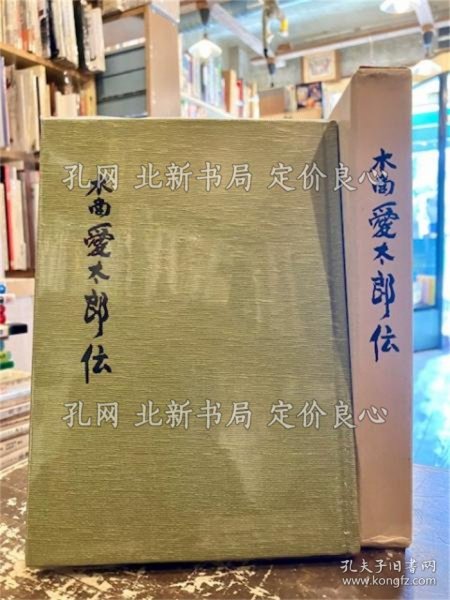 愛太郎伝
愛太郎伝
孔网 北新书局 定价良心
孔网 北新书局 定价良心
孔夫子旧书网
www.kongfz.com